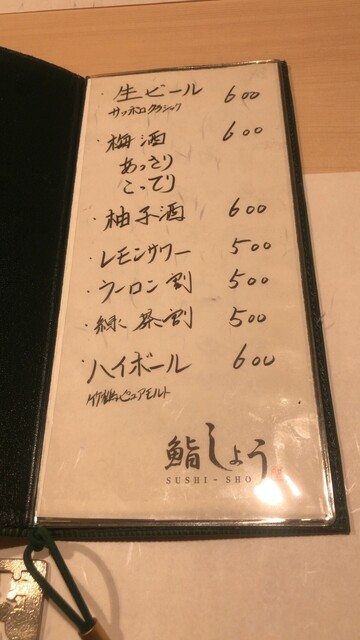 ・生ビール 600
サッポロクラシック
・梅酒 600
あっさり
こってり
・柚子酒 600
・レモンサワー 500
・ウーロン割 500
・緑茶割 500
・ハイボール 600
竹鶴ピュアモルト
鮨しょう
SUSHI-SHO